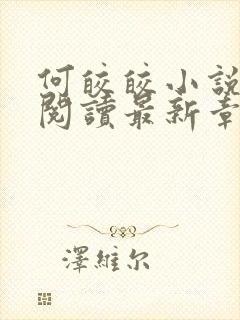 何皎皎小說
閱讀最新章
澤維尔